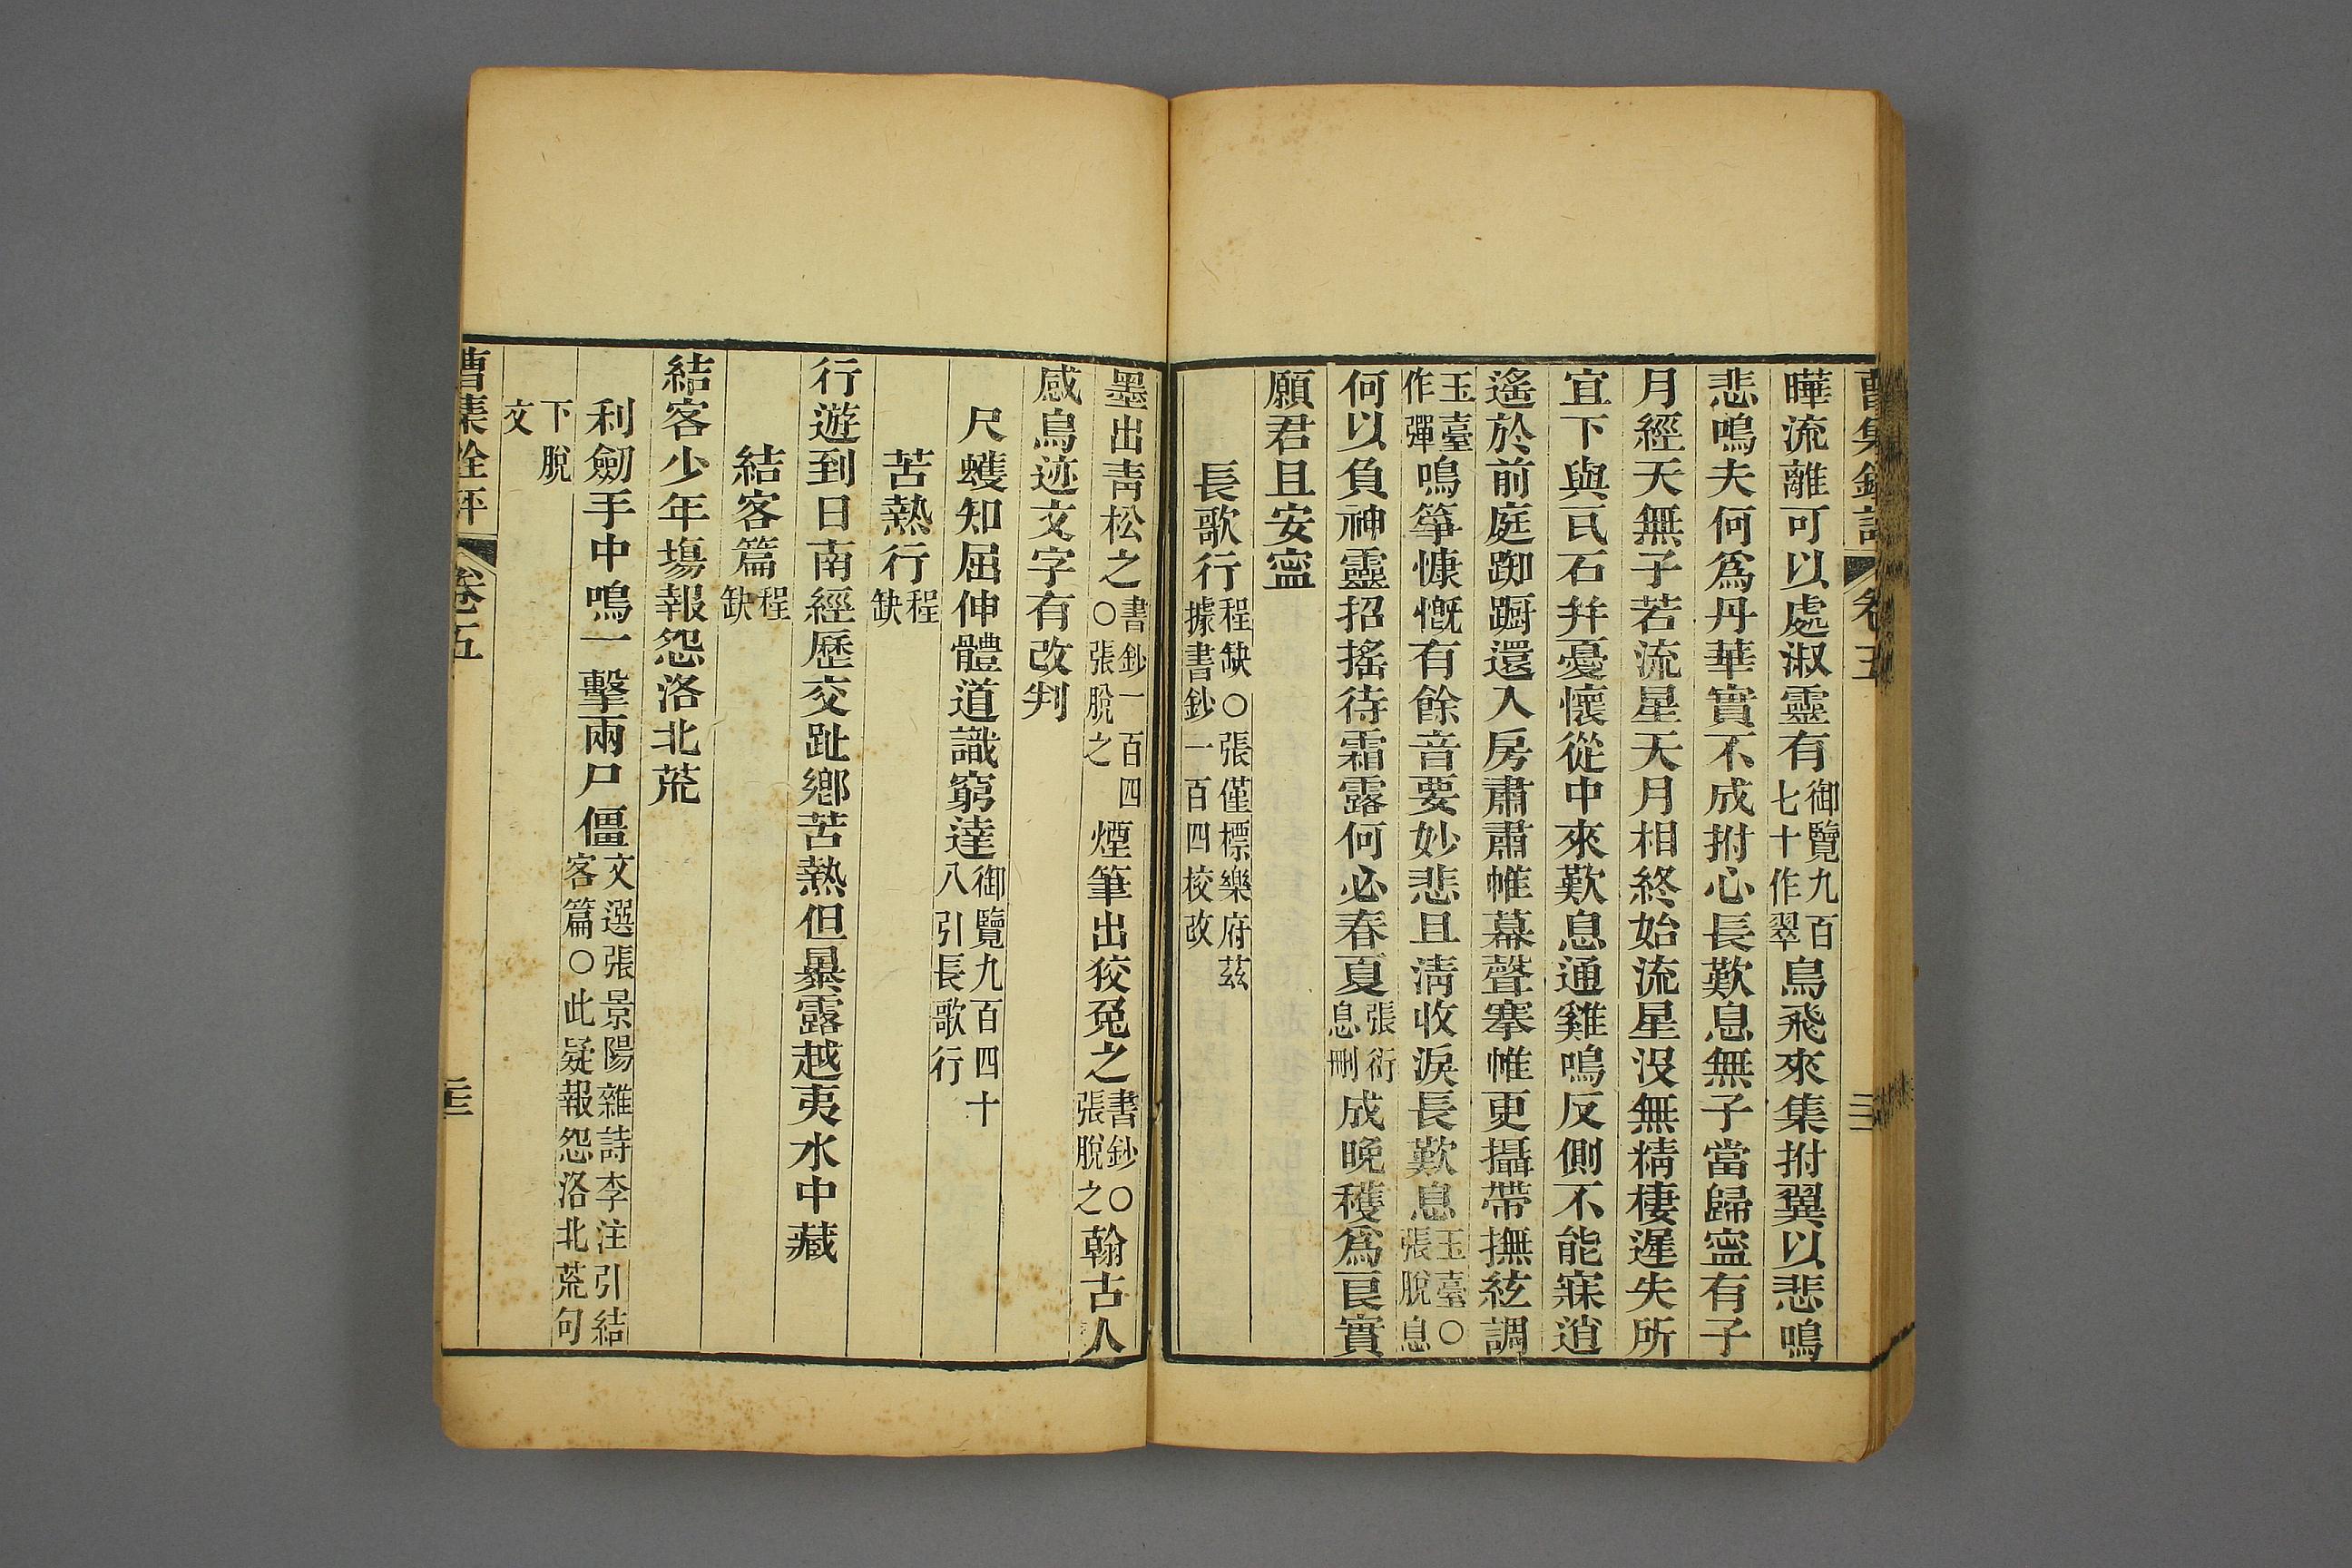 曹集銓評 卷五
曄流離可以處淑靈有御覽九百七十作翠鳥飛來集拊翼以悲鳴
悲鳴夫何爲丹華實不成拊心長歎息無子當歸寍有子
月經天無子若流星天月相終始流星沒無精棲遲失所
宜下與瓦石幷憂懷從中來歎息通雞鳴反側不能寐逍
遙於前庭踟躕還入房肅肅帷幕聲搴帷更攝帶撫絃調
玉臺作彈鳴箏慷慨有餘音要妙悲且淸收淚長歎息玉臺○張脫息
何以負神靈招搖待霜露何必春夏張衍息刪成晚穫爲良實
願君且安寍
長歌行程缺○張僅標樂府茲據書鈔一百四校改
墨出靑松之書鈔一百四○張脫之煙筆出狡兔之書鈔○張脫之翰古人
感鳥迹文字有改判
尺蠖知屈伸體道識窮達御覽九百四十八引長歌行
苦熱行程缺
行遊到日南經歷交趾鄉苦熱但暴露越夷水中藏
結客篇程缺
結客少年場報怨洛北荒
利劒手中鳴一擊兩尸僵文選張景陽雜詩李注引結客篇○此疑報怨洛北荒句
下脫文
曹集銓評 卷五